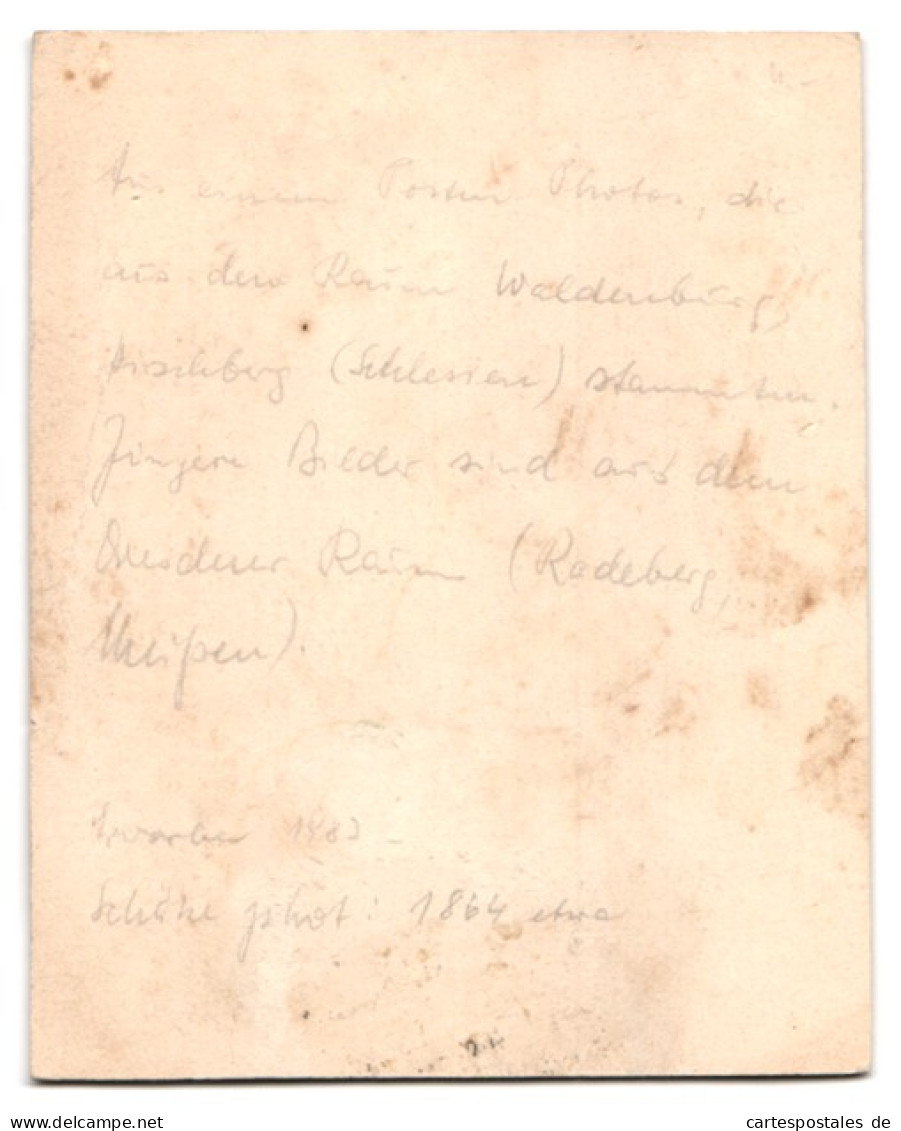 Aus einem Posten Photos, die
aus dem Raum Waldenburg,
Hirschberg (Schlesien) stammten.
Jüngere Bilder sind aus dem
Dresdener Raum (Radeberg,
Meißen).
Erworben 1983
phot: 1864 etwa
cartespostales de